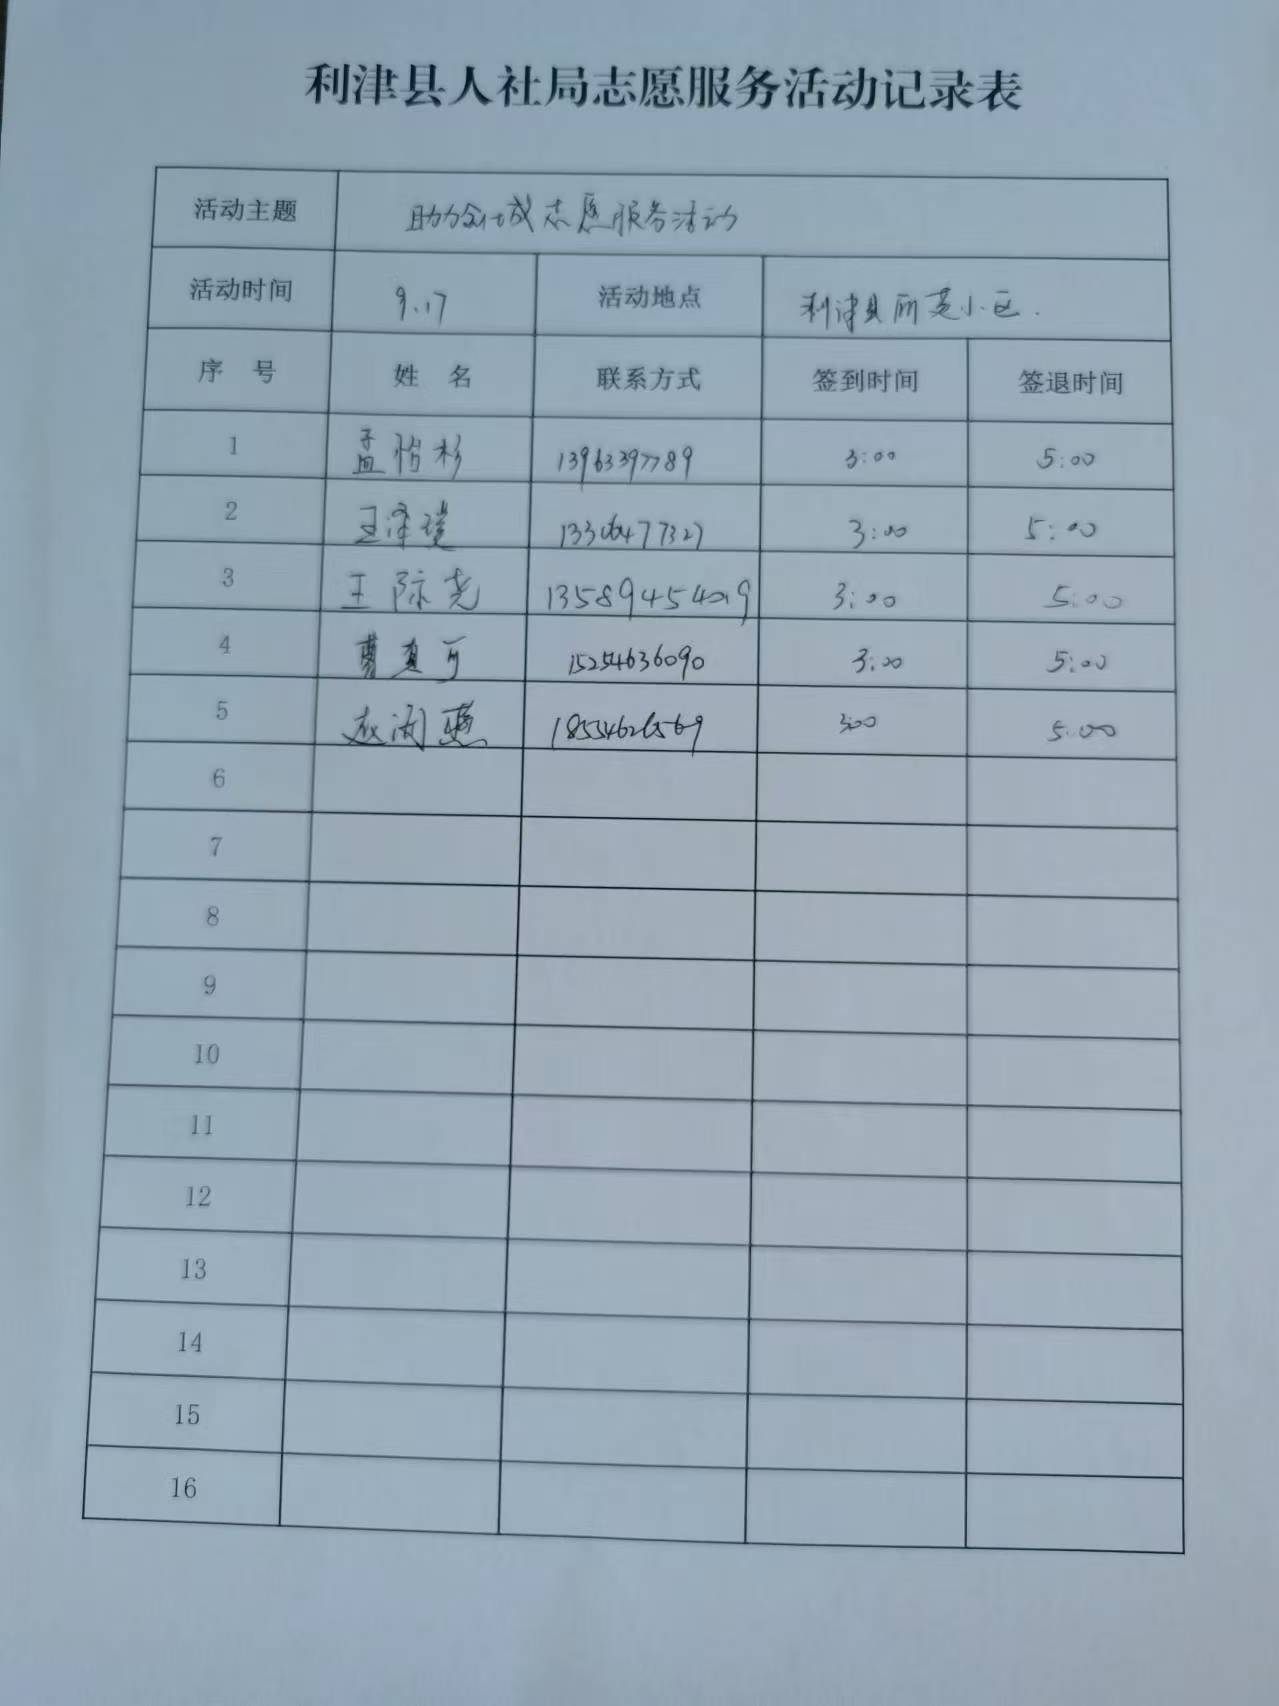 利津县人社局志愿服务活动记录表
活动主题 助力创城志愿服务活动
活动时间 9.17 活动地点 利津县 小区.
序 号 姓 名 联系方式 签到时间 签退时间
1 孟怡杉 13963397789 3:00 5:00
2 王泽璞 3:00 5:00
3 王际尧 3:00 5:00
4 曹 可 15254636090 3:00 5:00
5 赵闵燕 3:00 5:00
6
7
8
9
10
11
12
13
14
15
16